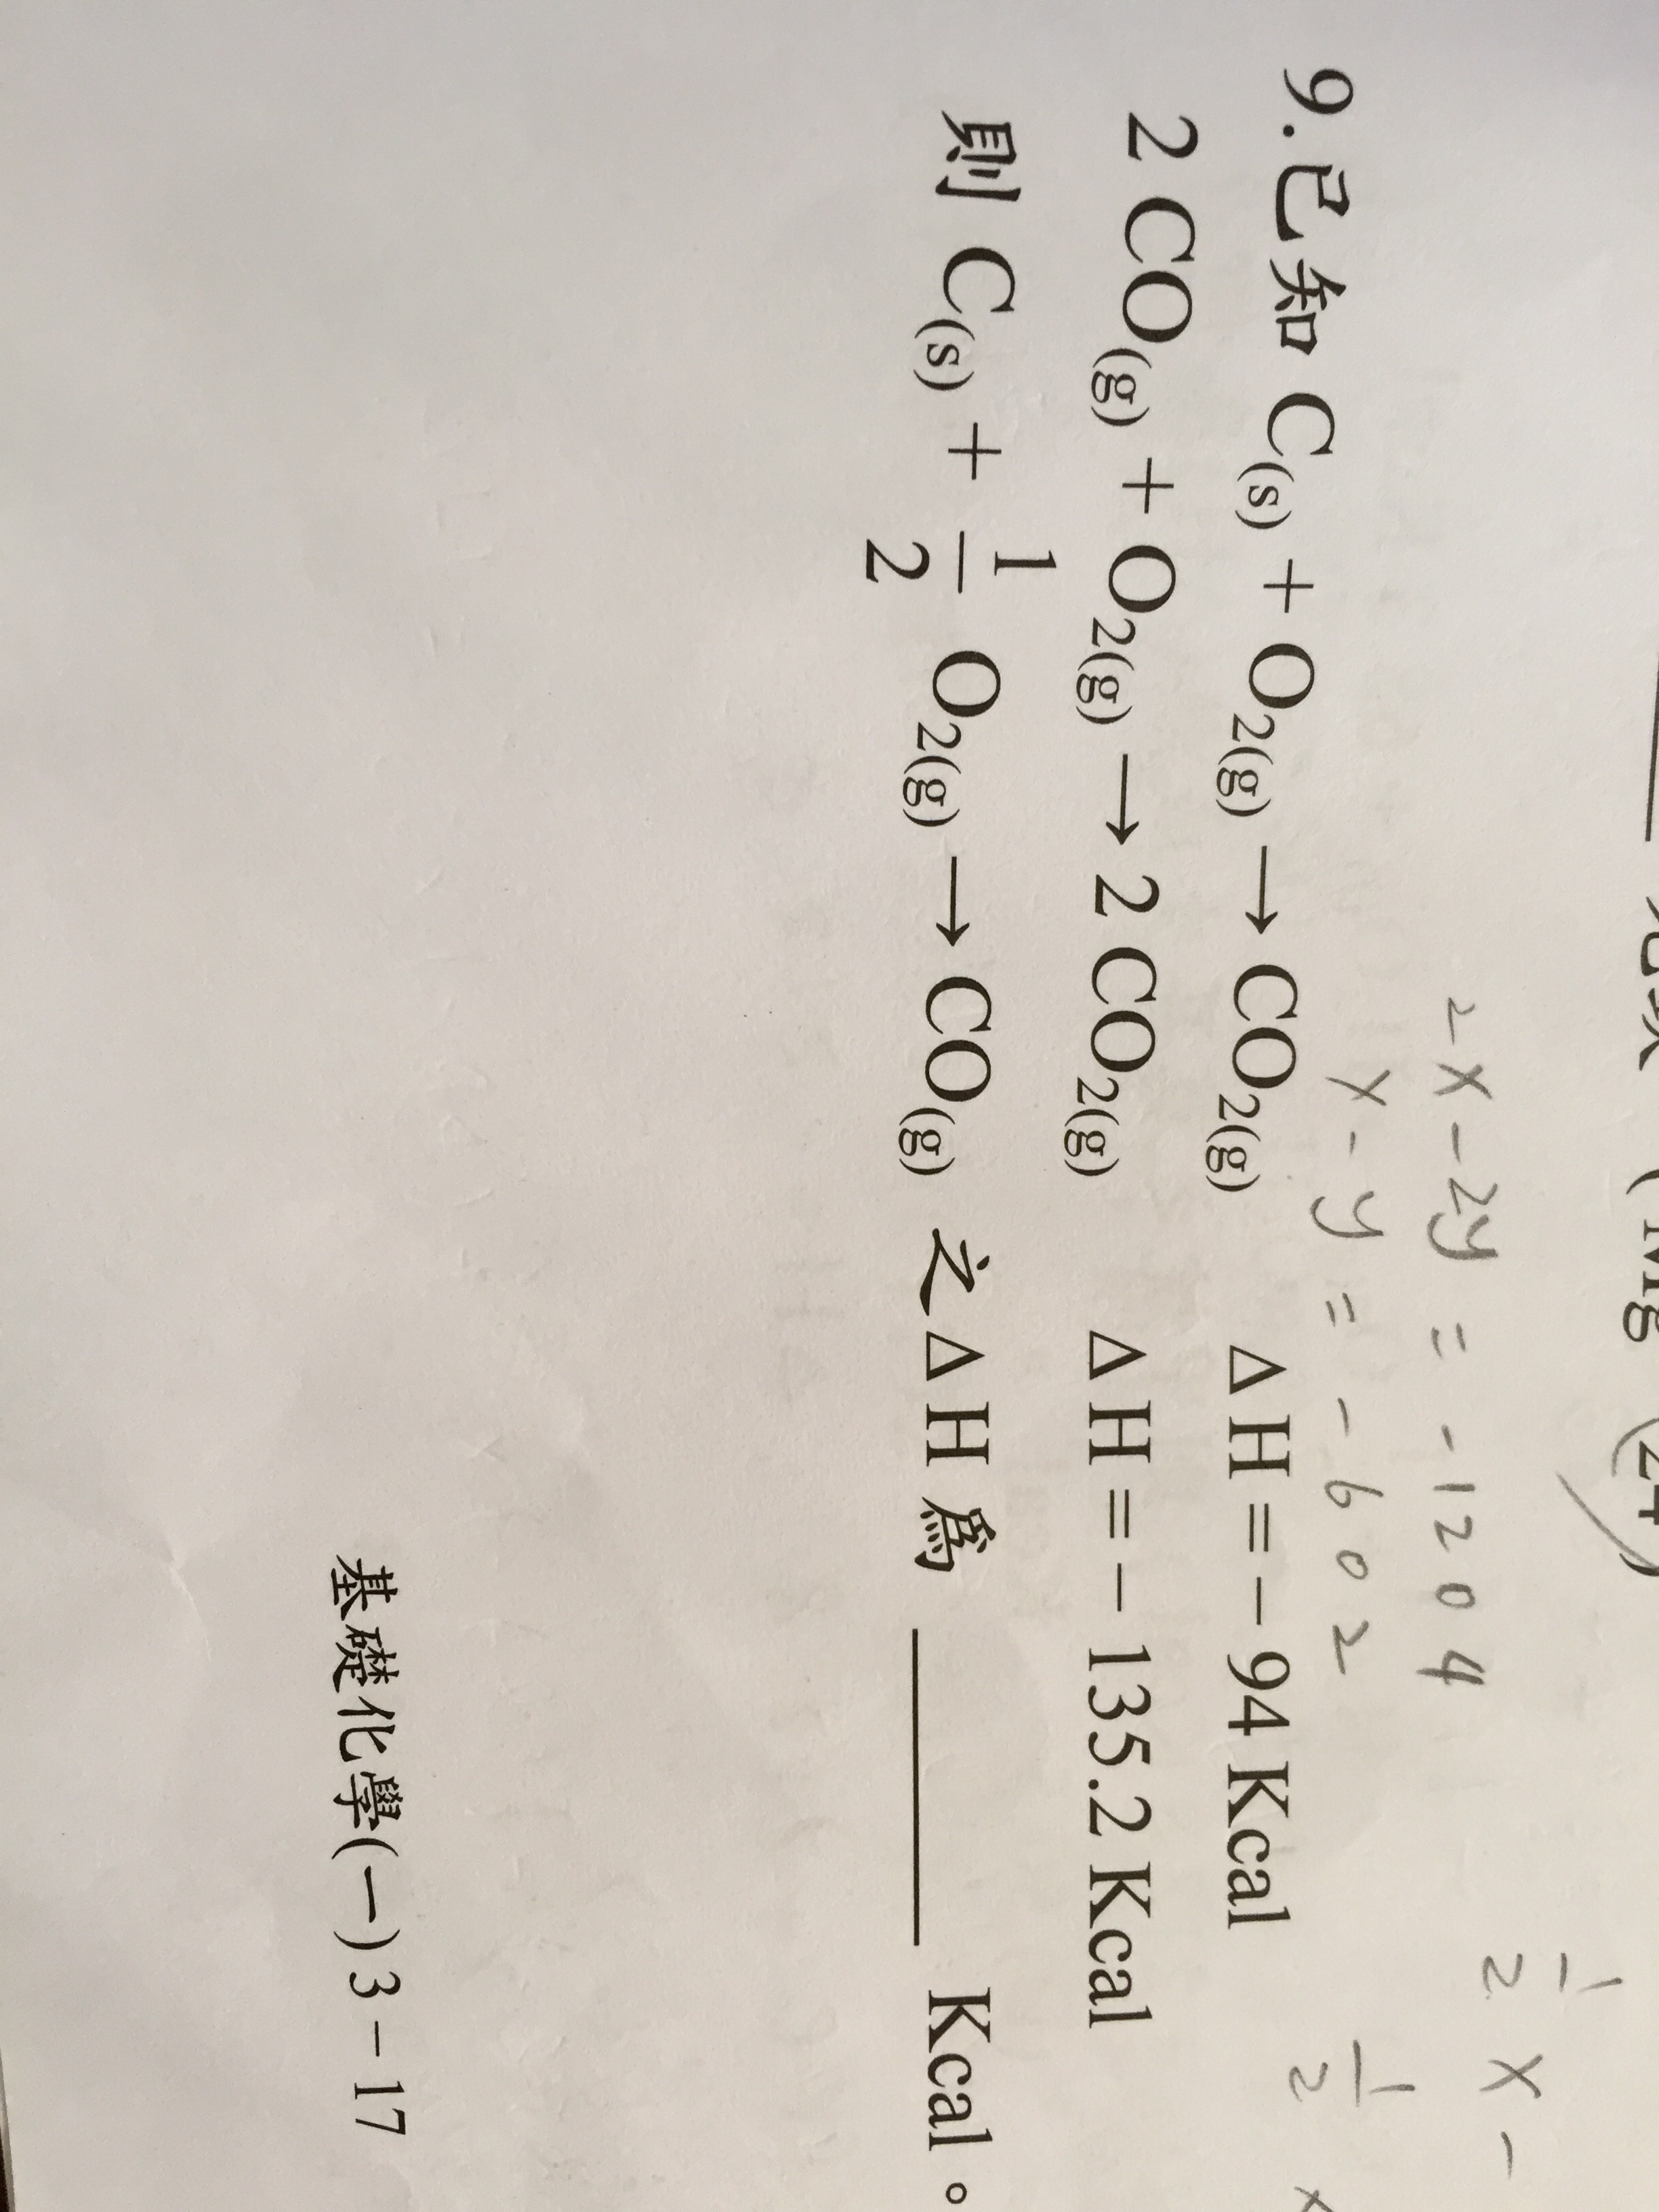 (Mg
24)
2x-2y = -1204
x-y = -602
1
2
x -
9.已知 C(s) + O2(g) → CO2(g) △H = -94 Kcal
1
2
x
2 CO(g) + O2(g) → 2 CO2(g) △H = -135.2 Kcal
則 C(s) + 1/2 O2(g) → CO(g) 之△H 為 ______ Kcal。
基礎化學(一) 3-17